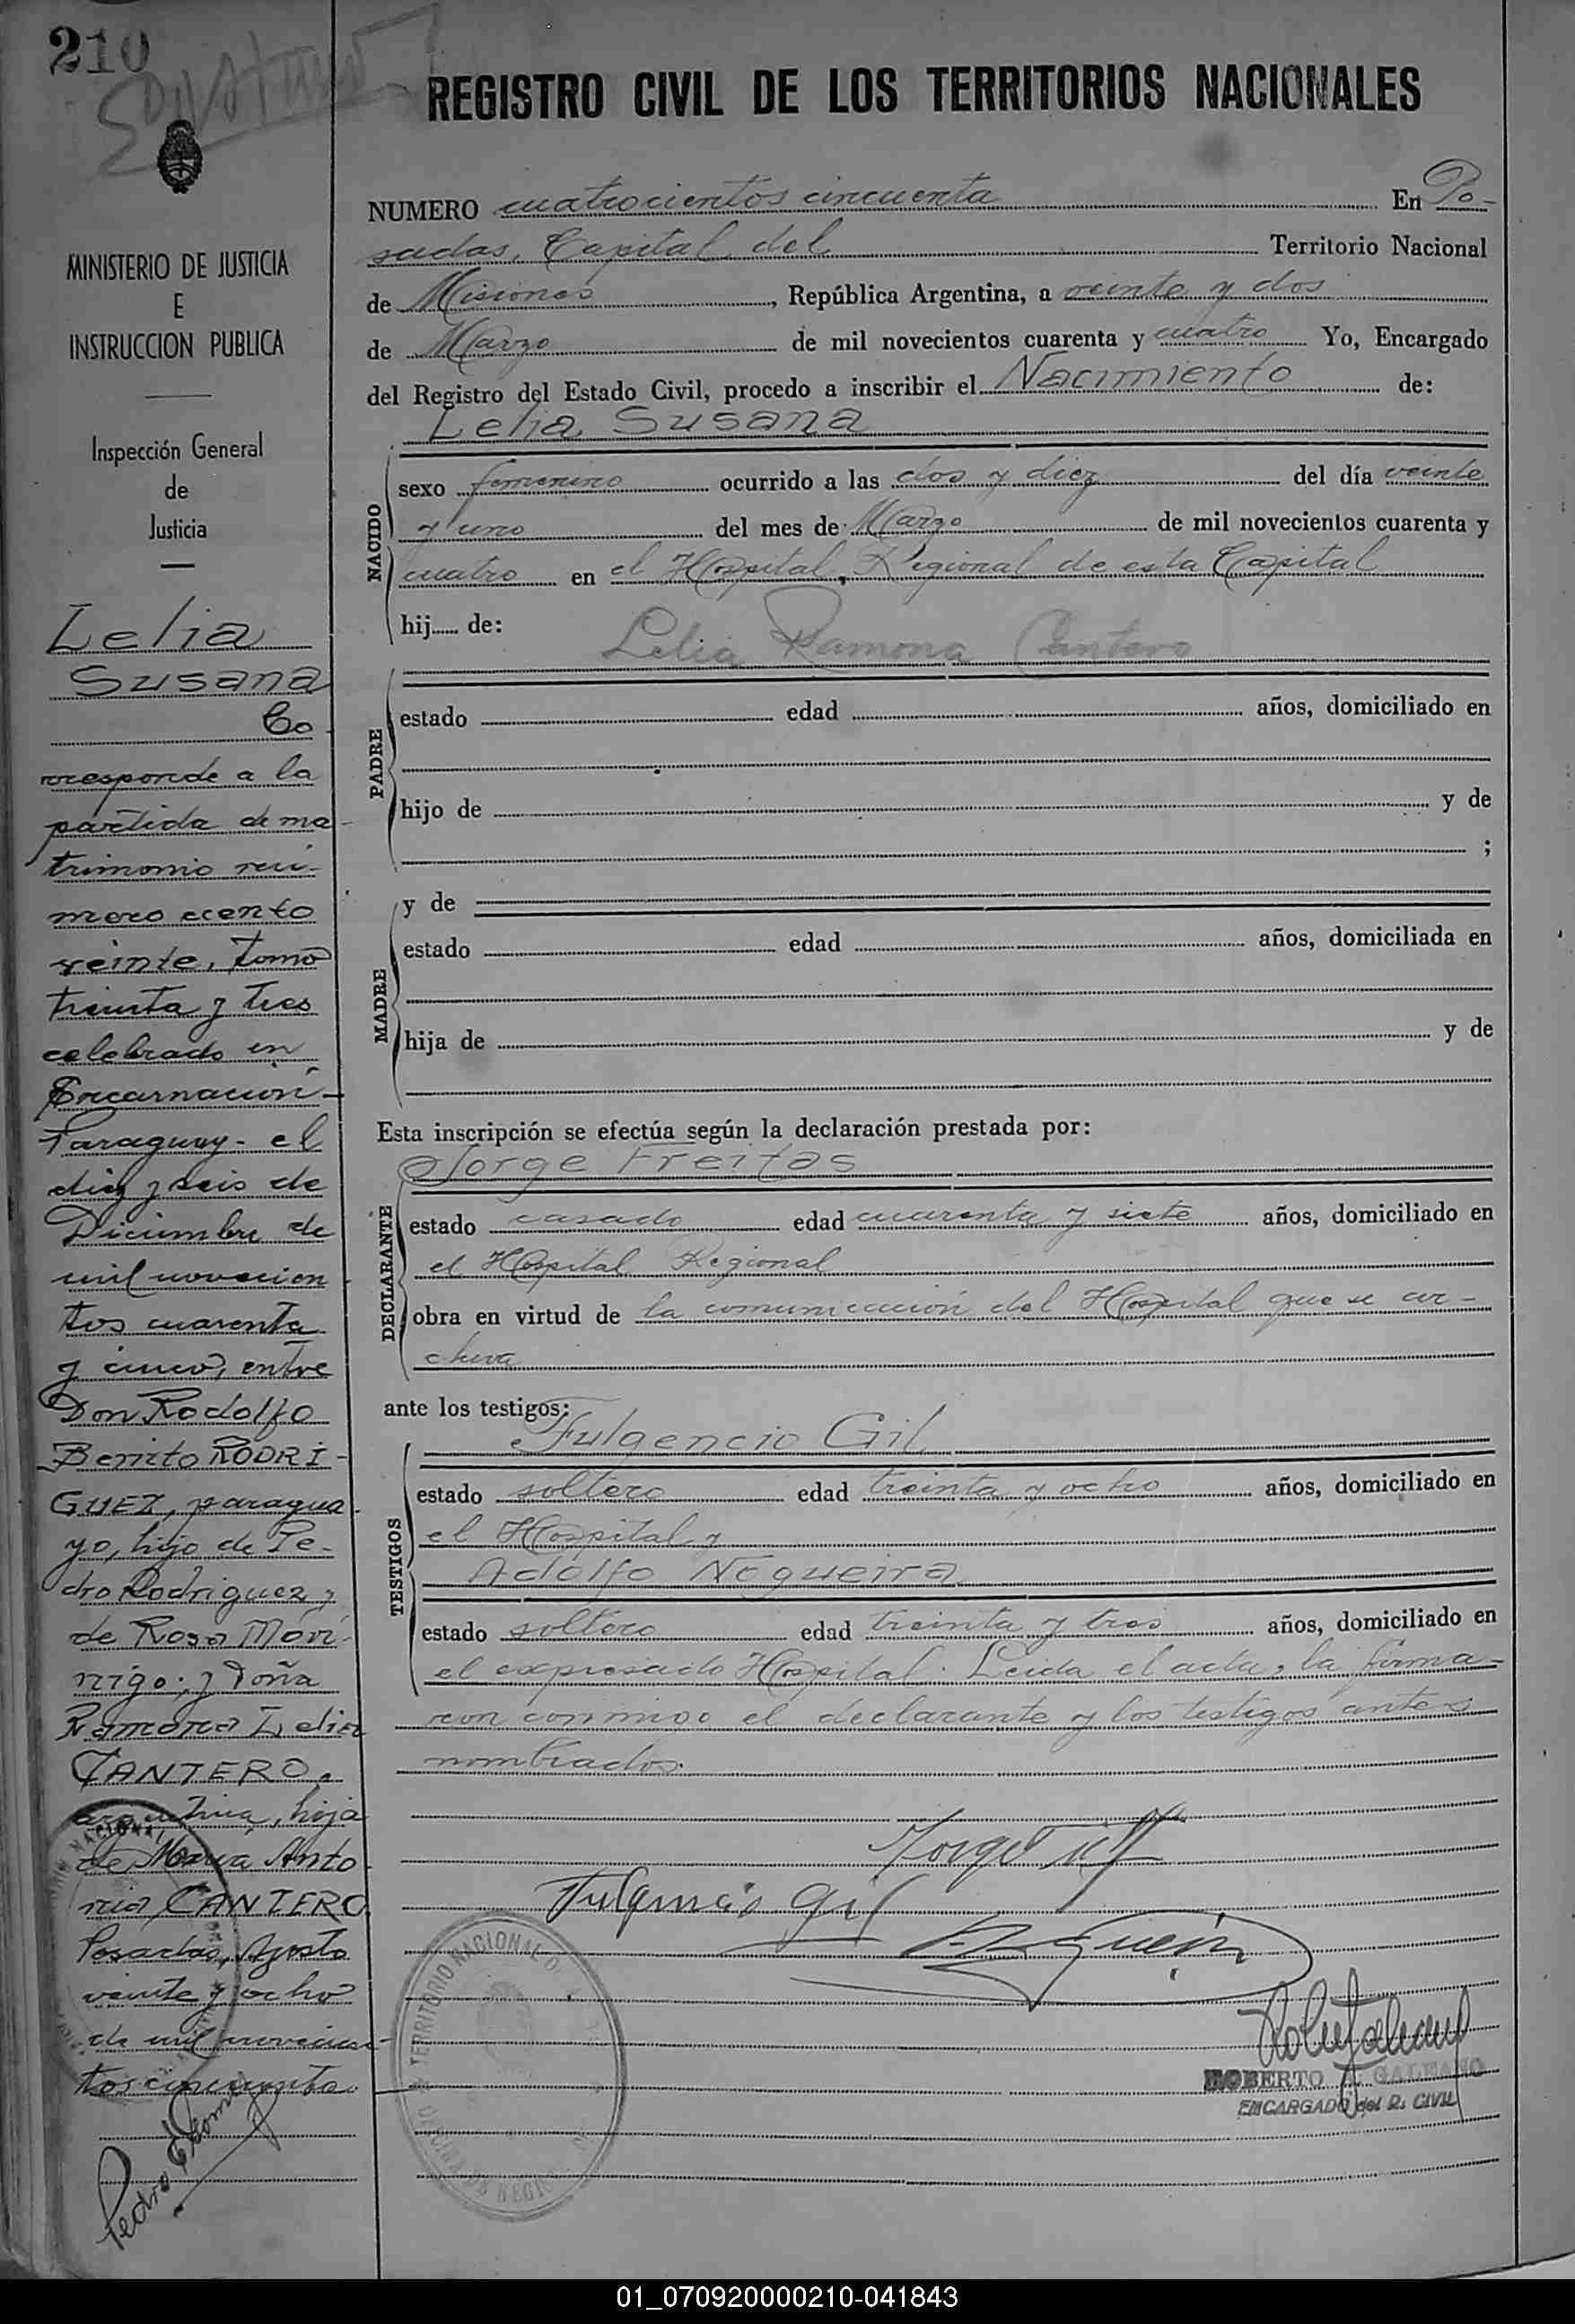 210
REGISTRO CIVIL DE LOS TERRITORIOS NACIONALES
MINISTERIO DE JUSTICIA
E
INSTRUCCION PUBLICA
Inspección General
de
Justicia
Lelia
Susana
Co
rresponde a la
partida de ma-
trimonio nú-
mero ciento
veinte, tomo
treinta y tres
celebrado en
Encarnación-
Paraguay- el
diez y seis de
Diciembre de
mil novecien
tos cuarenta
y cinco, entre
Don Rodolfo
Benito RODRI-
GUEZ, paragua-
yo, hijo de Pe-
dro Rodriguez y
de Rosa Móri-
nigo; y Doña
Ramona Lelia
CANTERO,
argentina, hija
de María Anto-
nia CANTERO
Posadas, Agosto
veinte y ocho
de mil novecien-
tos cincuenta.
NUMERO cuatrocientos cincuenta En Po-
sadas, Capital del Territorio Nacional
de Misiones, República Argentina, a veinte y dos
de Marzo de mil novecientos cuarenta y cuatro Yo, Encargado
del Registro del Estado Civil, procedo a inscribir el Nacimiento de:
Lelia Susana
NACIDO
sexo femenino ocurrido a las dos y diez del día veinte
y uno del mes de Marzo de mil novecientos cuarenta y
cuatro en el Hospital Regional de esta Capital
hij...... de:
Lelia Ramona Cantero
PADRE
estado edad años, domiciliado en
hijo de y de
;
MADRE
y de
estado edad años, domiciliada en
hija de y de
Esta inscripción se efectúa según la declaración prestada por:
Jorge Freitas
DECLARANTE
estado casado edad cuarenta y siete años, domiciliado en
el Hospital Regional
obra en virtud de la comunicación del Hospital que se ar-
chiva
ante los testigos:
Fulgencio Gil
TESTIGOS
estado soltero edad treinta y ocho años, domiciliado en
el Hospital y
Adolfo Nogueira
estado soltero edad treinta y tres años, domiciliado en
el expresado Hospital. Leida el acta, la firma-
ron conmigo el declarante y los testigos antes
nombrados.
Fulgencio Gil
TERRITORIO NACIONAL
ROBERTO GALEANO
ENCARGADO del R. CIVIL
01_070920000210-041843